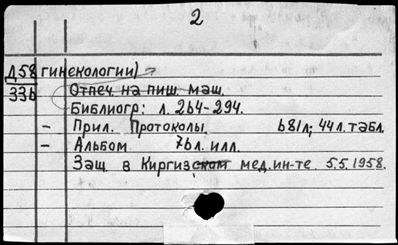 2
Д58 гинекологии)
33б Отпеч на пиш. маш.
Библиогр: л. 264-294.
- Прил. Протоколы, 681л; 44л.табл.
- Альбом 76л. илл.
Защ. в Киргизском мед.ин-те 5.5.1958.